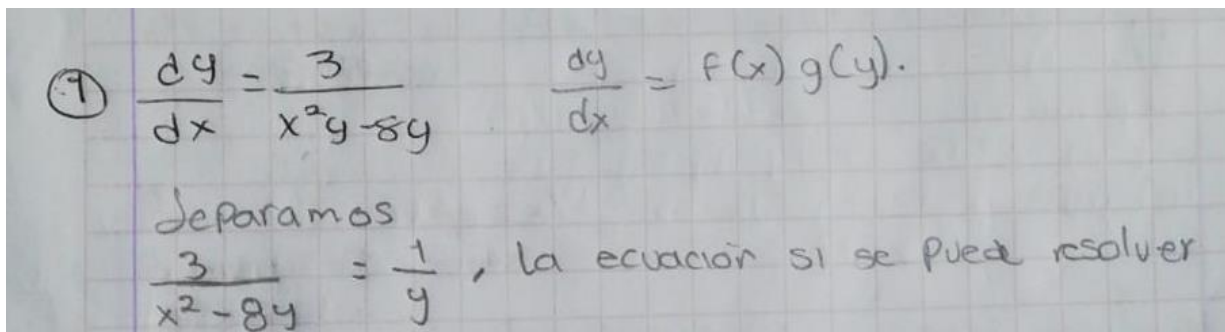 ① dy/dx = 3/(x²y-8y) dy/dx = f(x) g(y).
Separamos
3/(x²-8y) = 1/y, la ecuación si se puede resolver